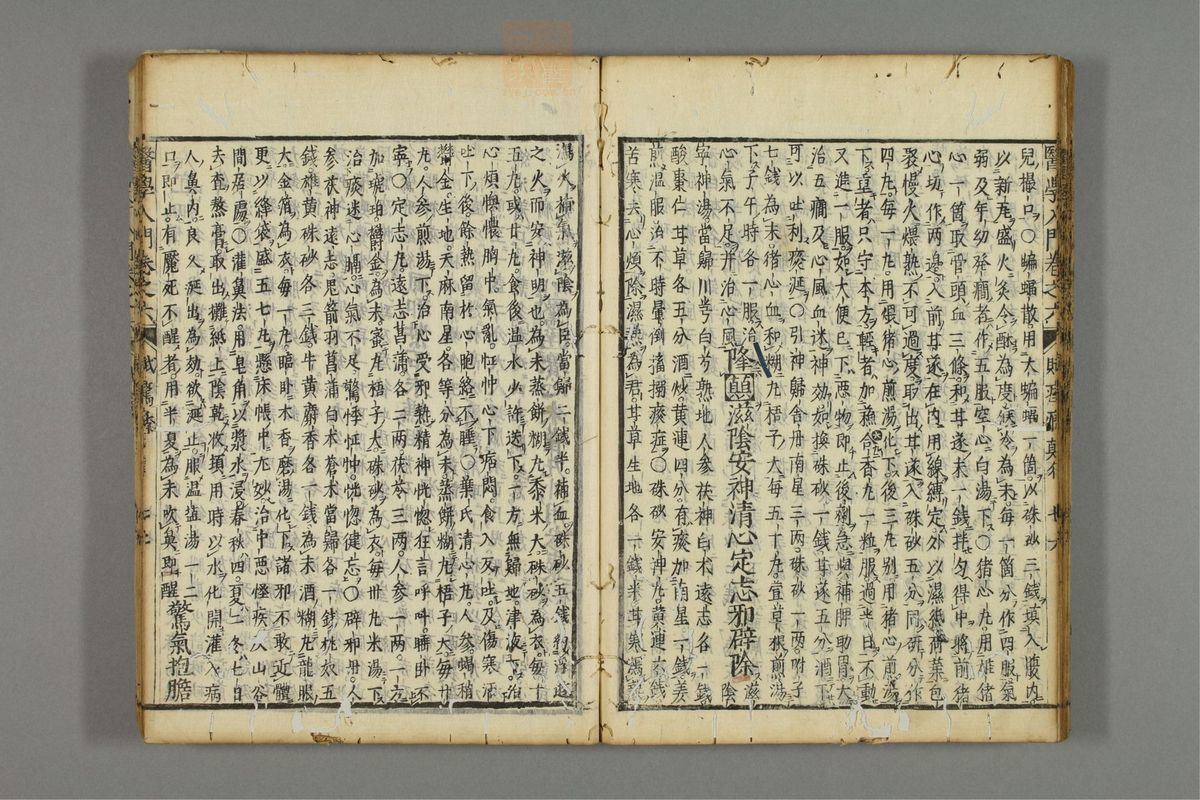 醫學入門卷之六
兒撮口○蝙蝠散用大蝙蝠一箇以硃砂三錢填入腹内
以新瓦盛火炙令酥為度候冷為末每一箇分作四服氣
弱及年幼發癇者分作五服空心白湯下○猪心丸用雄猪
心一箇取管頭血三條和甘遂末一錢拌勻得中將前猪
心切作两邊入前甘遂在内用線縛定外以濕紙荷葉包
裹慢火煨熟不可過度取出甘遂入硃砂五分同研分作
四丸每一丸用煨猪心煎湯化下後三丸别用猪心煎湯
下真者只守本方輕者加蘇合香丸一粒服過半日不動
又進一服如大便已下惡物即止後劑急與補脾助胃大
治五癇及心風血迷神効或換硃砂一錢甘遂五分酒下
可以吐利痰涎○引神歸舍丹南星三两硃砂一两附子
七錢為末猪心血和糊丸梧子大每五十丸萱草根煎湯
下子午時各一服治
心氣不足并治心風
滋陰安神清心定志邪辟除
滋陰
寧神湯當歸川芎白芍熟地人參茯神白术遠志各一錢
酸棗仁甘草各五分酒炒黄連四分有痰加南星一錢姜
煎温服治不時暈倒搐搦痰症○硃砂安神丸黄連六錢
苦寒去心煩除濕熱為君甘草生地各一錢半甘寒瀉
瀉火補氣滋陰為臣當歸二錢半補血硃砂五錢納浮遊
之火而安神明也為末蒸餅糊丸黍米大硃砂為衣每十
五丸或廿丸食後温水少許送下一方無歸地津液下治
心煩懊憹胸中氣亂怔忡心下痞悶食入反吐及傷寒汗
吐下後餘熱留於心胞絡不睡○葉氏清心丸人參蝎梢
欝金生地天麻南星各等分為末蒸餅糊丸梧子大每廿
丸人參煎湯下治心受邪熱精神恍惚狂言呼叫睡卧不
寧○定志丸遠志菖蒲各二两茯苓三两人參一两一方
加琥珀欝金為末蜜丸梧子大硃砂為衣每卅丸米湯下
治痰迷心膈心氣不足驚悸怔忡恍惚健忘○辟邪丹人
參茯神遠志鬼箭羽菖蒲白术蒼术當歸各一錢桃奴五
錢雄黄硃砂各三錢牛黄麝香各一錢為末酒糊丸龍眼
大金箔為衣每一丸臨卧木香磨湯化下諸邪不敢近體
更以絳袋盛五七丸懸床帳中尤妙治中惡怪疾及山谷
間居處○灌鼻法用皂角以漿水浸春秋四夏二冬七日
去査熬膏取出攤紙上陰乾收頓用時以水化開灌入病
人鼻内良久涎出為効欲涎止服温塩湯一二
口即止有魘死不醒者用半夏為末吹鼻即醒
驚氣抱膽
醫學入門卷之六